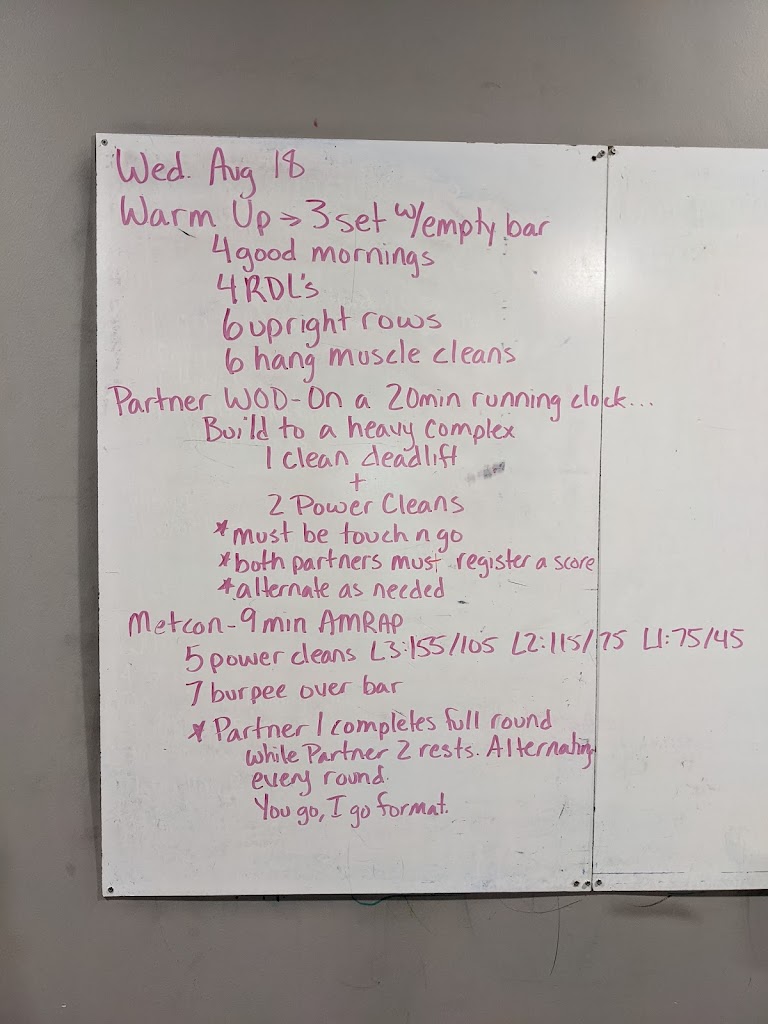 Wed. Aug 18
Warm Up → 3 set w/empty bar
4 good mornings
4 RDL's
6 upright rows
6 hang muscle clean's
Partner WOD - On a 20min running clock...
Build to a heavy complex
1 clean deadlift
+
2 Power Cleans
*must be touch n go
*both partners must register a score
*alternate as needed
Metcon - 9 min AMRAP
5 power cleans L3:155/105 L2:115/75 L1:75/45
7 burpee over bar
* Partner 1 completes full round
while Partner 2 rests. Alternating
every round.
You go, I go format.